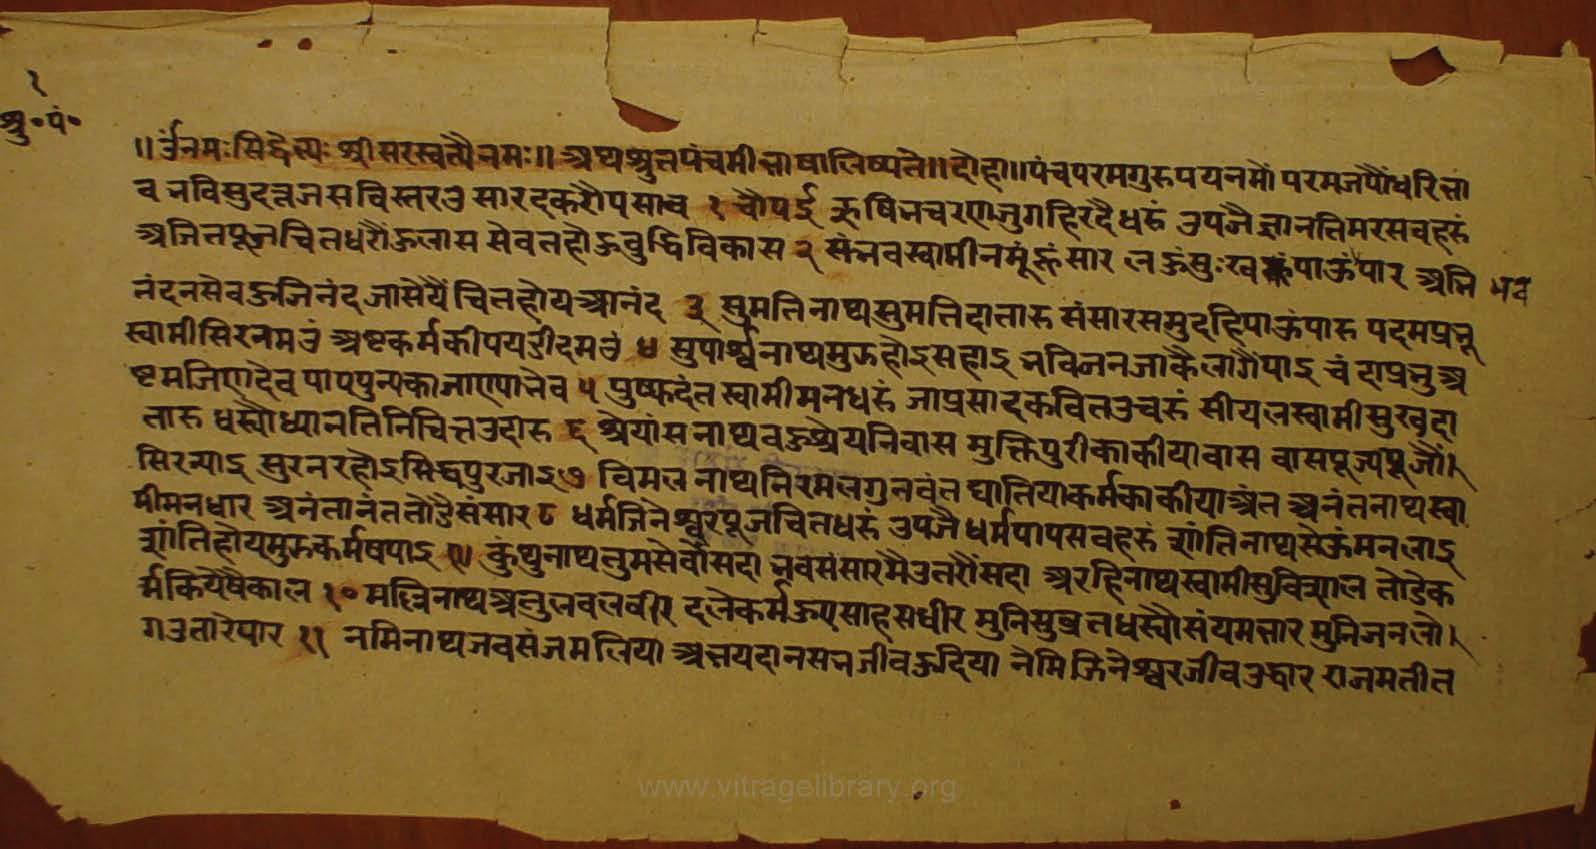 १
श्रु॰पं॰
॥ॐनमःसिद्धेभ्यः श्रीसरस्वत्यैनमः॥ अथश्रुतपंचमीभाषालिष्यते॥दोहा॥पंचपरमगुरुपयनमौं परमजपौंधरिभा
व भविसुदत्तजसविस्तरउ सारदकरौपसाव १ चौपई रुषिभचरणजुगहिरदैधरुं उपजैज्ञानतिमरसबहरुं
अजितपूजचितधरौऊलास सेवतहोऊबुद्धिविकास २ संभवस्वामीनमूंहूंसार लऊंसुःखपाऊंपार अभि
नंदनसेवऊजिनंद जासेयैंचितहोयआनंद ३ सुमतिनाथसुमतिदातारु संसारसमुदहिपाऊंपारु पदमप्रभू
स्वामीसिरनमउं अष्टकर्मकीपयडीदमउं ४ सुपार्श्वनाथमुऊहोइसहाइ भविजनजाकैलागैंपाइ चंदाप्रभुअ
ष्टमजिणदेव पापपुन्यकाजाएपाभेव ५ पुष्फदंतस्वामीमनधरुं जाप्रसादकवितउचरुं सीयलस्वामीसुखदा
तारु धस्यौध्यानतिनिचित्तउदारु ६ श्रेयांसनाथबऊश्रेयनिवास मुक्तिपुरीकाकीयावास वासपूज्यपूजौं
सिरन्याइ सुरनरहोइसिद्धपुरजाइ ७ विमलनाथनिरमलगुनवंत घातियाकर्मकाकीयाअंत अनंतनाथस्वा
मीमनधार अनंतानंततोडैसंसार ८ धर्मजिनेश्वरपूजचितधरुं उपजैधर्मपापसबहरुं शांतिनाथसेऊंमनलाइ
शांतिहोयमुऊकर्मषपाइ ९ कुंथुनाथतुमसेवौंसदा भवसंसारमैउतरौंसदा अरहिनाथस्वामीसुविशाल तोडेक
र्मकियेषैकाल १० मल्लिनाथअतुलबलवीर दलेकर्मऊएसाहसधीर मुनिसुव्रतधस्यौसंयमभार मुनिजनलो
गउतारेपार ११ नमिनाथजबसंजमलिया अभयदानसबजीवऊदिया नेमिजिनेश्वरजीवउद्धार राजमतीत
www.vitragelibrary.org